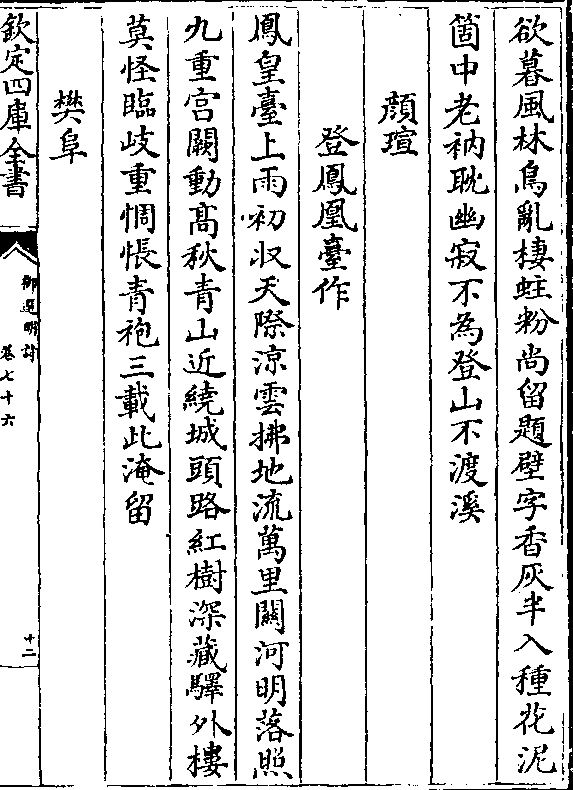 欲暮風林鳥亂棲蛀粉尚留題壁字香灰半入種花泥
箇中老衲耽幽寂不為登山不渡溪
顔瑄
登鳳凰臺作
鳳皇臺上雨初收天際涼雲拂地流萬里關河明落照
九重宫闕動髙秋青山近繞城頭路紅樹深藏驛外樓
莫怪臨岐重惆悵青袍三載此淹留
樊阜
欽定四庫全書
御選明詩
卷七十六
十二